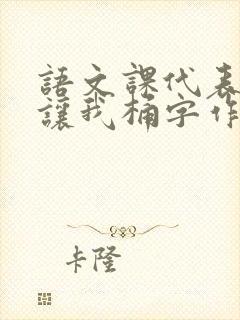 語文課代表
讓我桶字作
卡隆